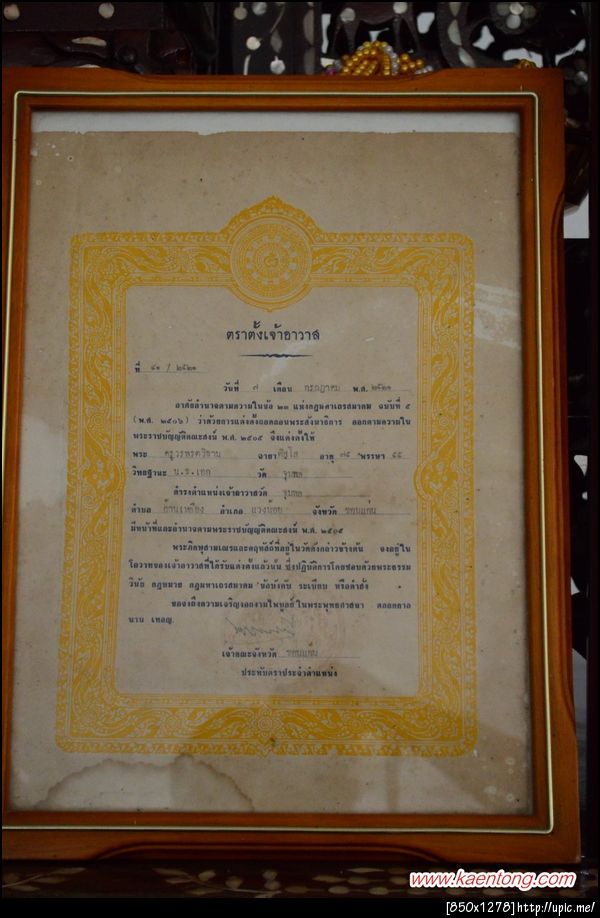 ตราตั้งเจ้าอาวาส
ที่ ๔๑ / ๒๕๒๑
วันที่ ๗ เดือน กรกฎาคม พ.ศ. ๒๕๒๑
อาศัยอำนาจตามความในข้อ ๒๓ แห่งกฎมหาเถรสมาคม ฉบับที่ ๕
(พ.ศ. ๒๕๐๖) ว่าด้วยการแต่งตั้งถอดถอนพระสังฆาธิการ ออกตามความใน
พระราชบัญญัติคณะสงฆ์ พ.ศ. ๒๕๐๕ จึงแต่งตั้งให้
พระ ครูวรพรตวิธาน ฉายา อายุ ๗๕ พรรษา ๕๕
วิทยฐานะ น.ธ.เอก วัด จุมพล
ดำรงตำแหน่งเจ้าอาวาสวัด จุมพล
ตำบล ก้านเหลือง อำเภอ แวงน้อย จังหวัด ขอนแก่น
มีหน้าที่และอำนาจตามพระราชบัญญัติคณะสงฆ์ พ.ศ. ๒๕๐๕
พระภิกษุสามเณรและคฤหัสถ์ที่อยู่ในวัดดังกล่าวข้างต้น จงอยู่ใน
โอวาทของเจ้าอาวาสที่ได้รับแต่งตั้งแล้วนั้น ซึ่งปฏิบัติการโดยชอบด้วยพระธรรม
วินัย กฎหมาย กฎมหาเถรสมาคม ข้อบังคับ ระเบียบ หรือคำสั่ง
ขอจงถึงความเจริญงอกงามไพบูลย์ ในพระพุทธศาสนา ตลอดกาล
นาน เทอญ.
เจ้าคณะจังหวัด ขอนแก่น
ประทับตราประจำตำแหน่ง
www.kaentong.com
[850x1278]http://upic.me/